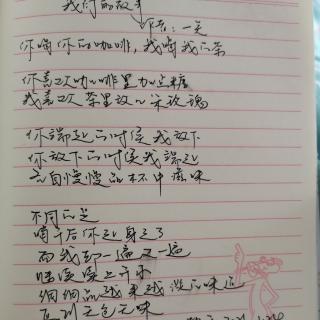 我们的故事
作者：一笑
你喝你的咖啡，我喝我的茶
你喜欢咖啡里加点糖
我喜欢茶里放一朵玫瑰
你端起的时候我放下
你放下的时候我端起
各自慢慢品杯中滋味
不同的是
喝干后你起身走了
而我却一遍又一遍
续上开水
细细品越来越淡的味道
直到无色无味